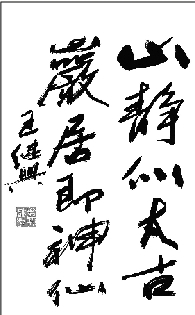 山静似太古
岩居即神仙
王继兴